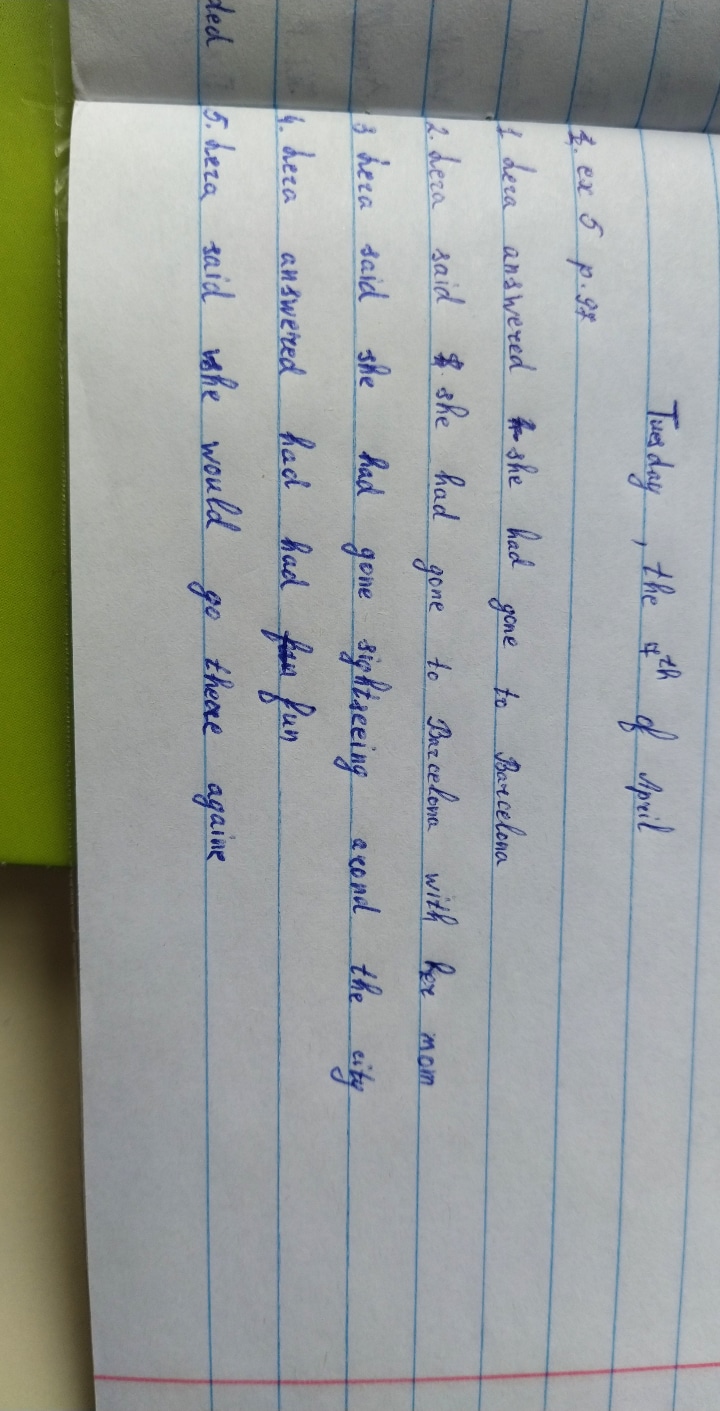 Tuesday, the 7th of April
1. ex 5 p.97
1 Lera answered she had gone to Barcelona
2. Lera said she had gone to Barcelona with her mom
3 Lera said she had gone sightseeing arond the city
4. Lera answered had had fun
ded
5. Lera said she would go there againe